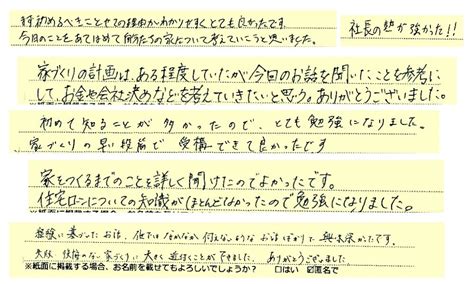 まず初めるべきことやその理由がわかりやすくとても良かったです。
今日のことをあてはめて自分たちの家について考えていこうと思いました。
社長の想が強かった!!
家づくりの計画は、ある程度していたが今日のお話を聞いたことを参考に
して、お金や会社決めなどを考えていきたいと思う。ありがとうございました。
初めて知ることが多かったので、とても勉強になりました。
家づくりの早い段階で受講できて良かったです
家をつくるまでのことを詳しく聞けたのでよかったです。
住宅ローンについての知識がほとんどなかったので勉強になりました。
経験に基づいたお話、他ではなかなか伺えないようなお話ばかりで興味深かったです。
失敗、後悔のない家づくりに大きく近付くことができました。ありがとうございました
※紙面に掲載する場合、お名前を載せてもよろしいでしょうか? □はい ☑匿名で